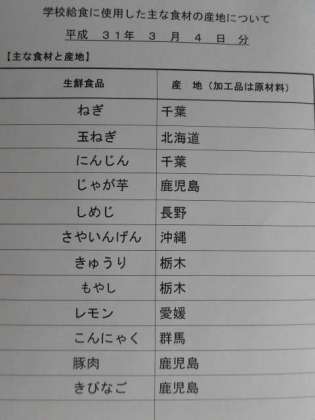 学校給食に使用した主な食材の産地について
平成 31年 3 月 4 日 分
【主な食材と産地】
生鮮食品 産 地（加工品は原材料）
ねぎ 千葉
玉ねぎ 北海道
にんじん 千葉
じゃが芋 鹿児島
しめじ 長野
さやいんげん 沖縄
きゅうり 栃木
もやし 栃木
レモン 愛媛
こんにゃく 群馬
豚肉 鹿児島
きびなご 鹿児島